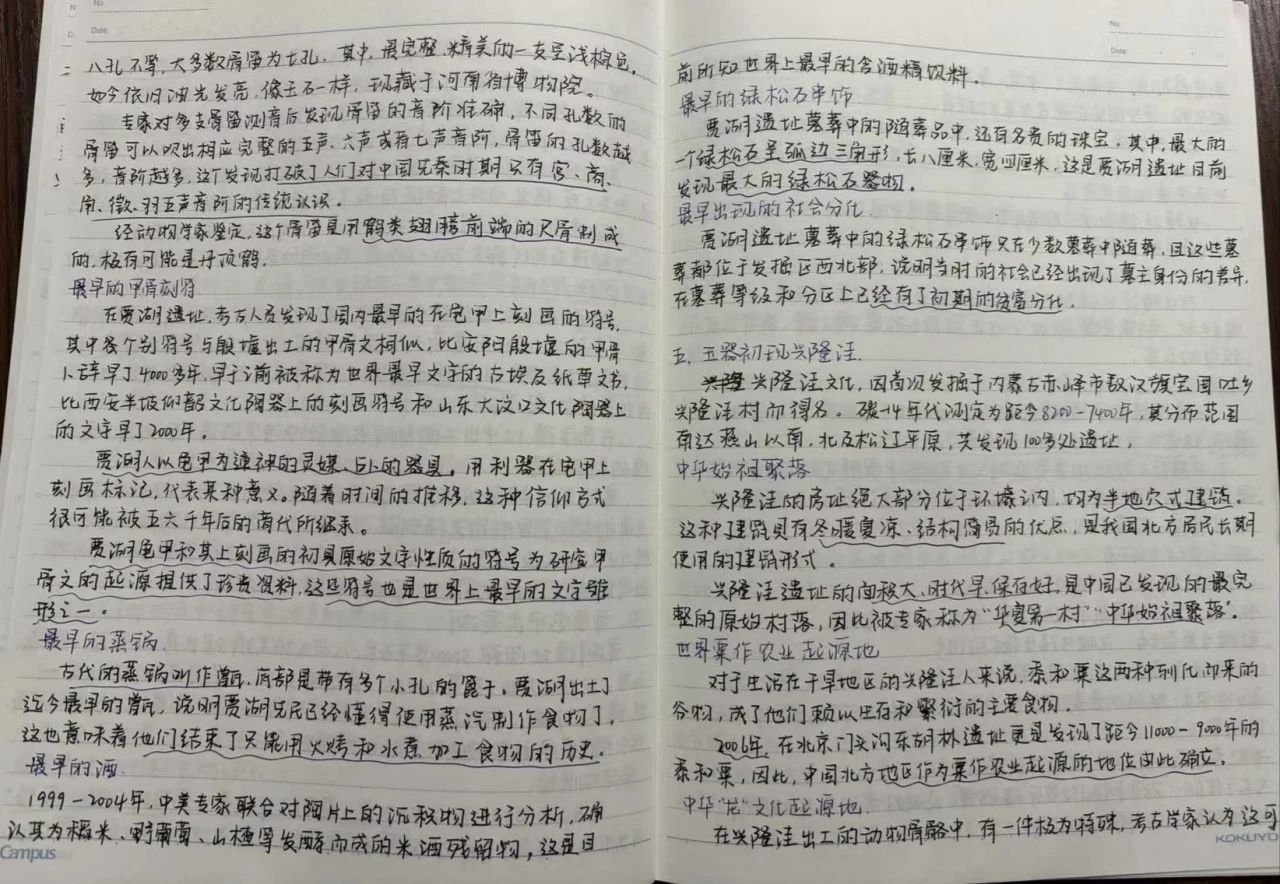 No.
Date
八孔不等,大多数骨笛为七孔。其中,最完整、精美的一支呈浅棕色,
如今依旧油光发亮,像玉石一样,现藏于河南省博物院。
专家对多支骨笛测音后发现骨笛的音阶准确,不同孔数的
骨笛可以吹出相应完整的五声、六声或有七声音阶,骨笛的孔数越
多,音阶越多,这个发现打破了人们对中国先秦时期只有宫、商、
角、徵、羽五声音阶的传统认识。
经动物学家鉴定,这个骨笛是用鹤类翅膀前端的尺骨制成
的,极有可能是丹顶鹤。
最早的甲骨刻符
在贾湖遗址,考古人员发现了国内最早的在龟甲上刻画的符号,
其中各个别符号与殷墟出土的甲骨文相似,比安阳殷墟的甲骨
卜辞早了4000多年,早于前被称为世界最早文字的古埃及纸草文书,
比西安半坡仰韶文化陶器上的刻画符号和山东大汶口文化陶器上
的文字早了2000年。
贾湖人以龟甲为通神的灵媒、占卜的器具。用利器在龟甲上
刻画标记,代表某种意义。随着时间的推移,这种信仰方式
很可能被五六千年后的商代所继承。
贾湖龟甲和其上刻画的初具原始文字性质的符号为研究甲
骨文的起源提供了珍贵资料,这些符号也是世界上最早的文字雏
形之一。
最早的蒸锅
古代的蒸锅叫作甑,底部是带有多个小孔的篦子。贾湖出土了
迄今最早的甑,说明贾湖先民已经懂得使用蒸汽制作食物了,
这也意味着他们结束了只能用火烤和水煮加工食物的历史。
最早的酒
1999-2004年,中美专家联合对陶片上的沉积物进行分析,确
认其为稻米、野葡萄、山楂等发酵而成的米酒残留物,这是目
Campus
No.
Date
前所知世界上最早的含酒精饮料。
最早的绿松石串饰
贾湖遗址墓葬中的随葬品中,还有名贵的珠宝,其中,最大的
一个绿松石呈弧边三角形,长八厘米,宽四厘米,这是贾湖遗址目前
发现最大的绿松石器物。
最早出现的社会分化
贾湖遗址墓葬中的绿松石串饰只在少数墓葬中随葬,且这些墓
葬都位于发掘区西北部,说明当时的社会已经出现了墓主身份的差异,
在墓葬等级和分区上已经有了初期的贫富分化。
五、玉器初现兴隆洼
兴隆洼文化,因首次发掘于内蒙古赤峰市敖汉旗宝国吐乡
兴隆洼村而得名。碳-14年代测定为距今8200-7400年,其分布范围
南达燕山以南,北及松辽平原,共发现100多处遗址。
中华始祖聚落
兴隆洼的房址绝大部分位于环壕之内,均为半地穴式建筑。
这种建筑具有冬暖夏凉、结构简易的优点,是我国北方居民长期
使用的建筑形式。
兴隆洼遗址的面积大、时代早、保存好,是中国已发现的最完
整的原始村落,因此被专家称为“华夏第一村”“中华始祖聚落”。
世界粟作农业起源地
对于生活在干旱地区的兴隆洼人来说,黍和粟这两种驯化而来的
谷物,成了他们赖以生存和繁衍的主要食物。
2006年,在北京门头沟东胡林遗址更是发现了距今11000-9000年的
黍和粟,因此,中国北方地区作为粟作农业起源的地位由此确立。
中华“龙”文化起源地
在兴隆洼出土的动物骨骼中,有一件极为特殊,考古学家认为这可
KOKUYO